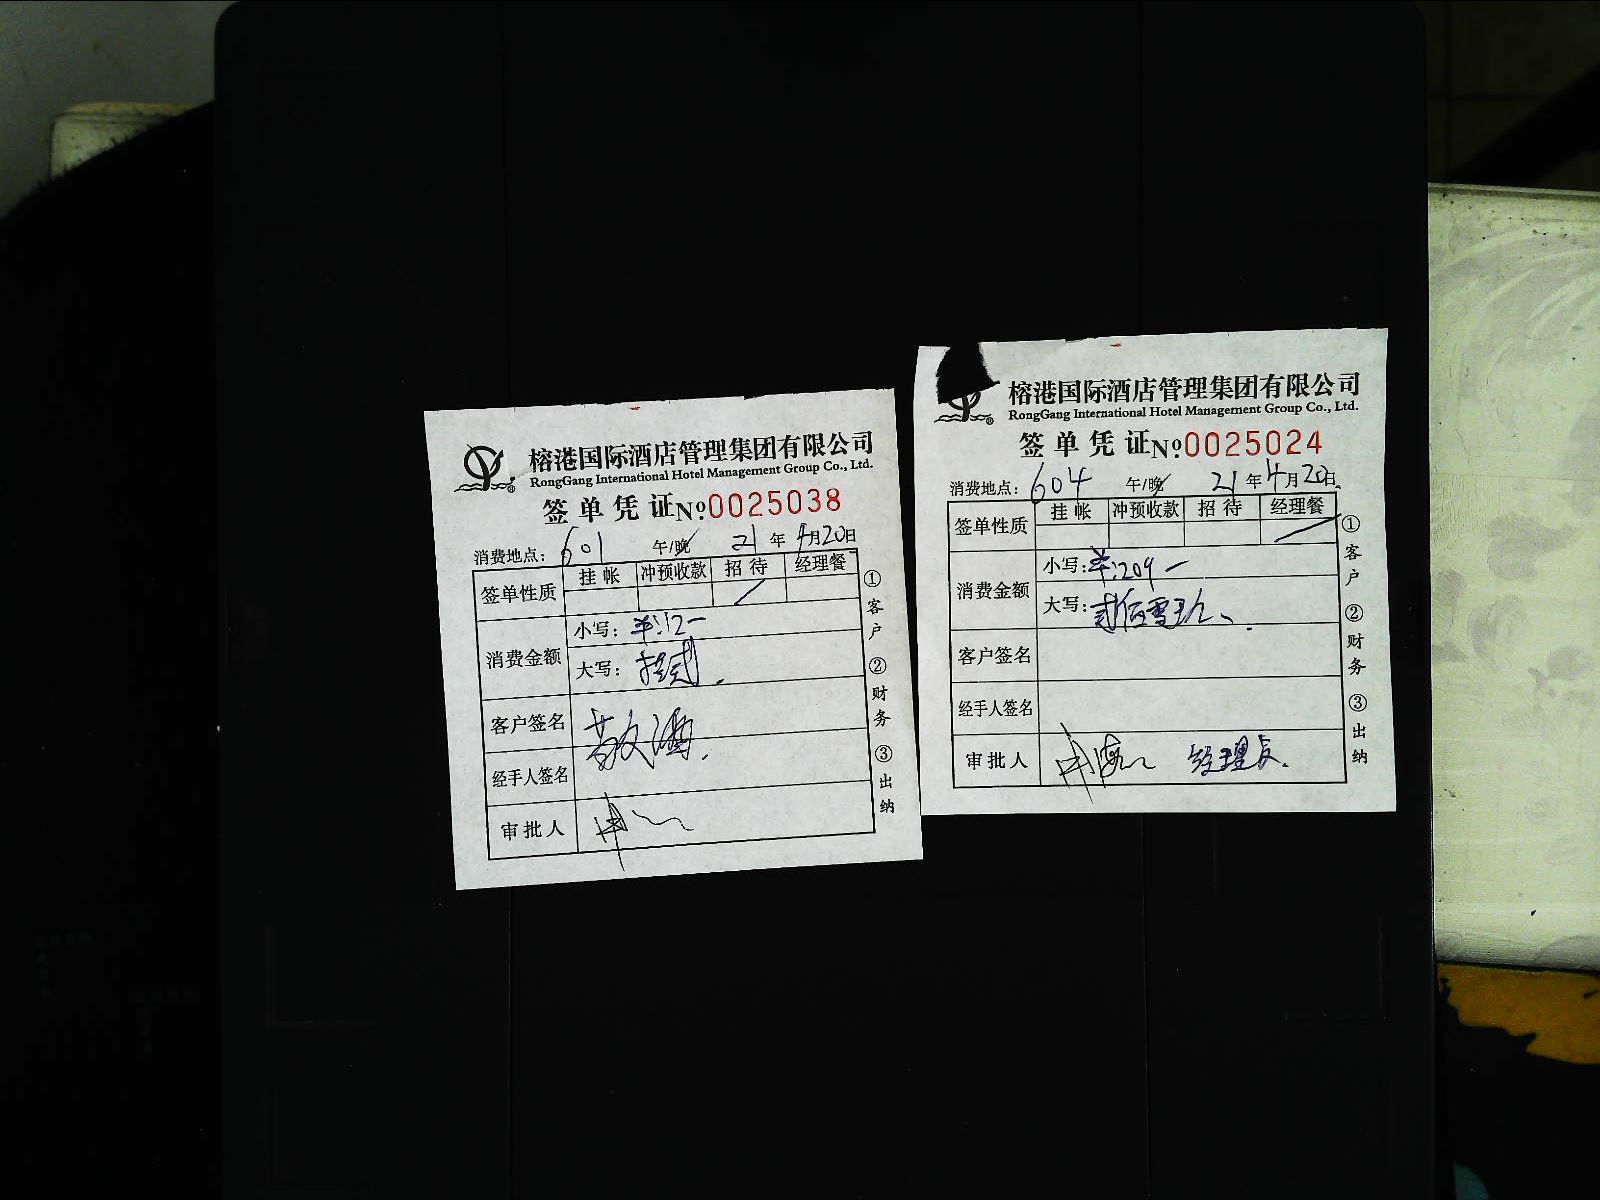 榕港国际酒店管理集团有限公司
RongGang International Hotel Management Group Co., Ltd.
签单凭证 No:0025038
消费地点: 601 午/晚 21年4月20日
签单性质 挂帐 冲预收款 招待 经理餐
消费金额 小写: ¥:12一
大写: 拾贰
客户签名 敬酒.
经手人签名
审批人
①客户 ②财务 ③出纳
榕港国际酒店管理集团有限公司
RongGang International Hotel Management Group Co., Ltd.
签单凭证 No:0025024
消费地点: 604 午/晚 21年4月20日
签单性质 挂帐 冲预收款 招待 经理餐
消费金额 小写: ¥:209一
大写: 贰佰零玖
客户签名
经手人签名
审批人 经理餐.
①客户 ②财务 ③出纳